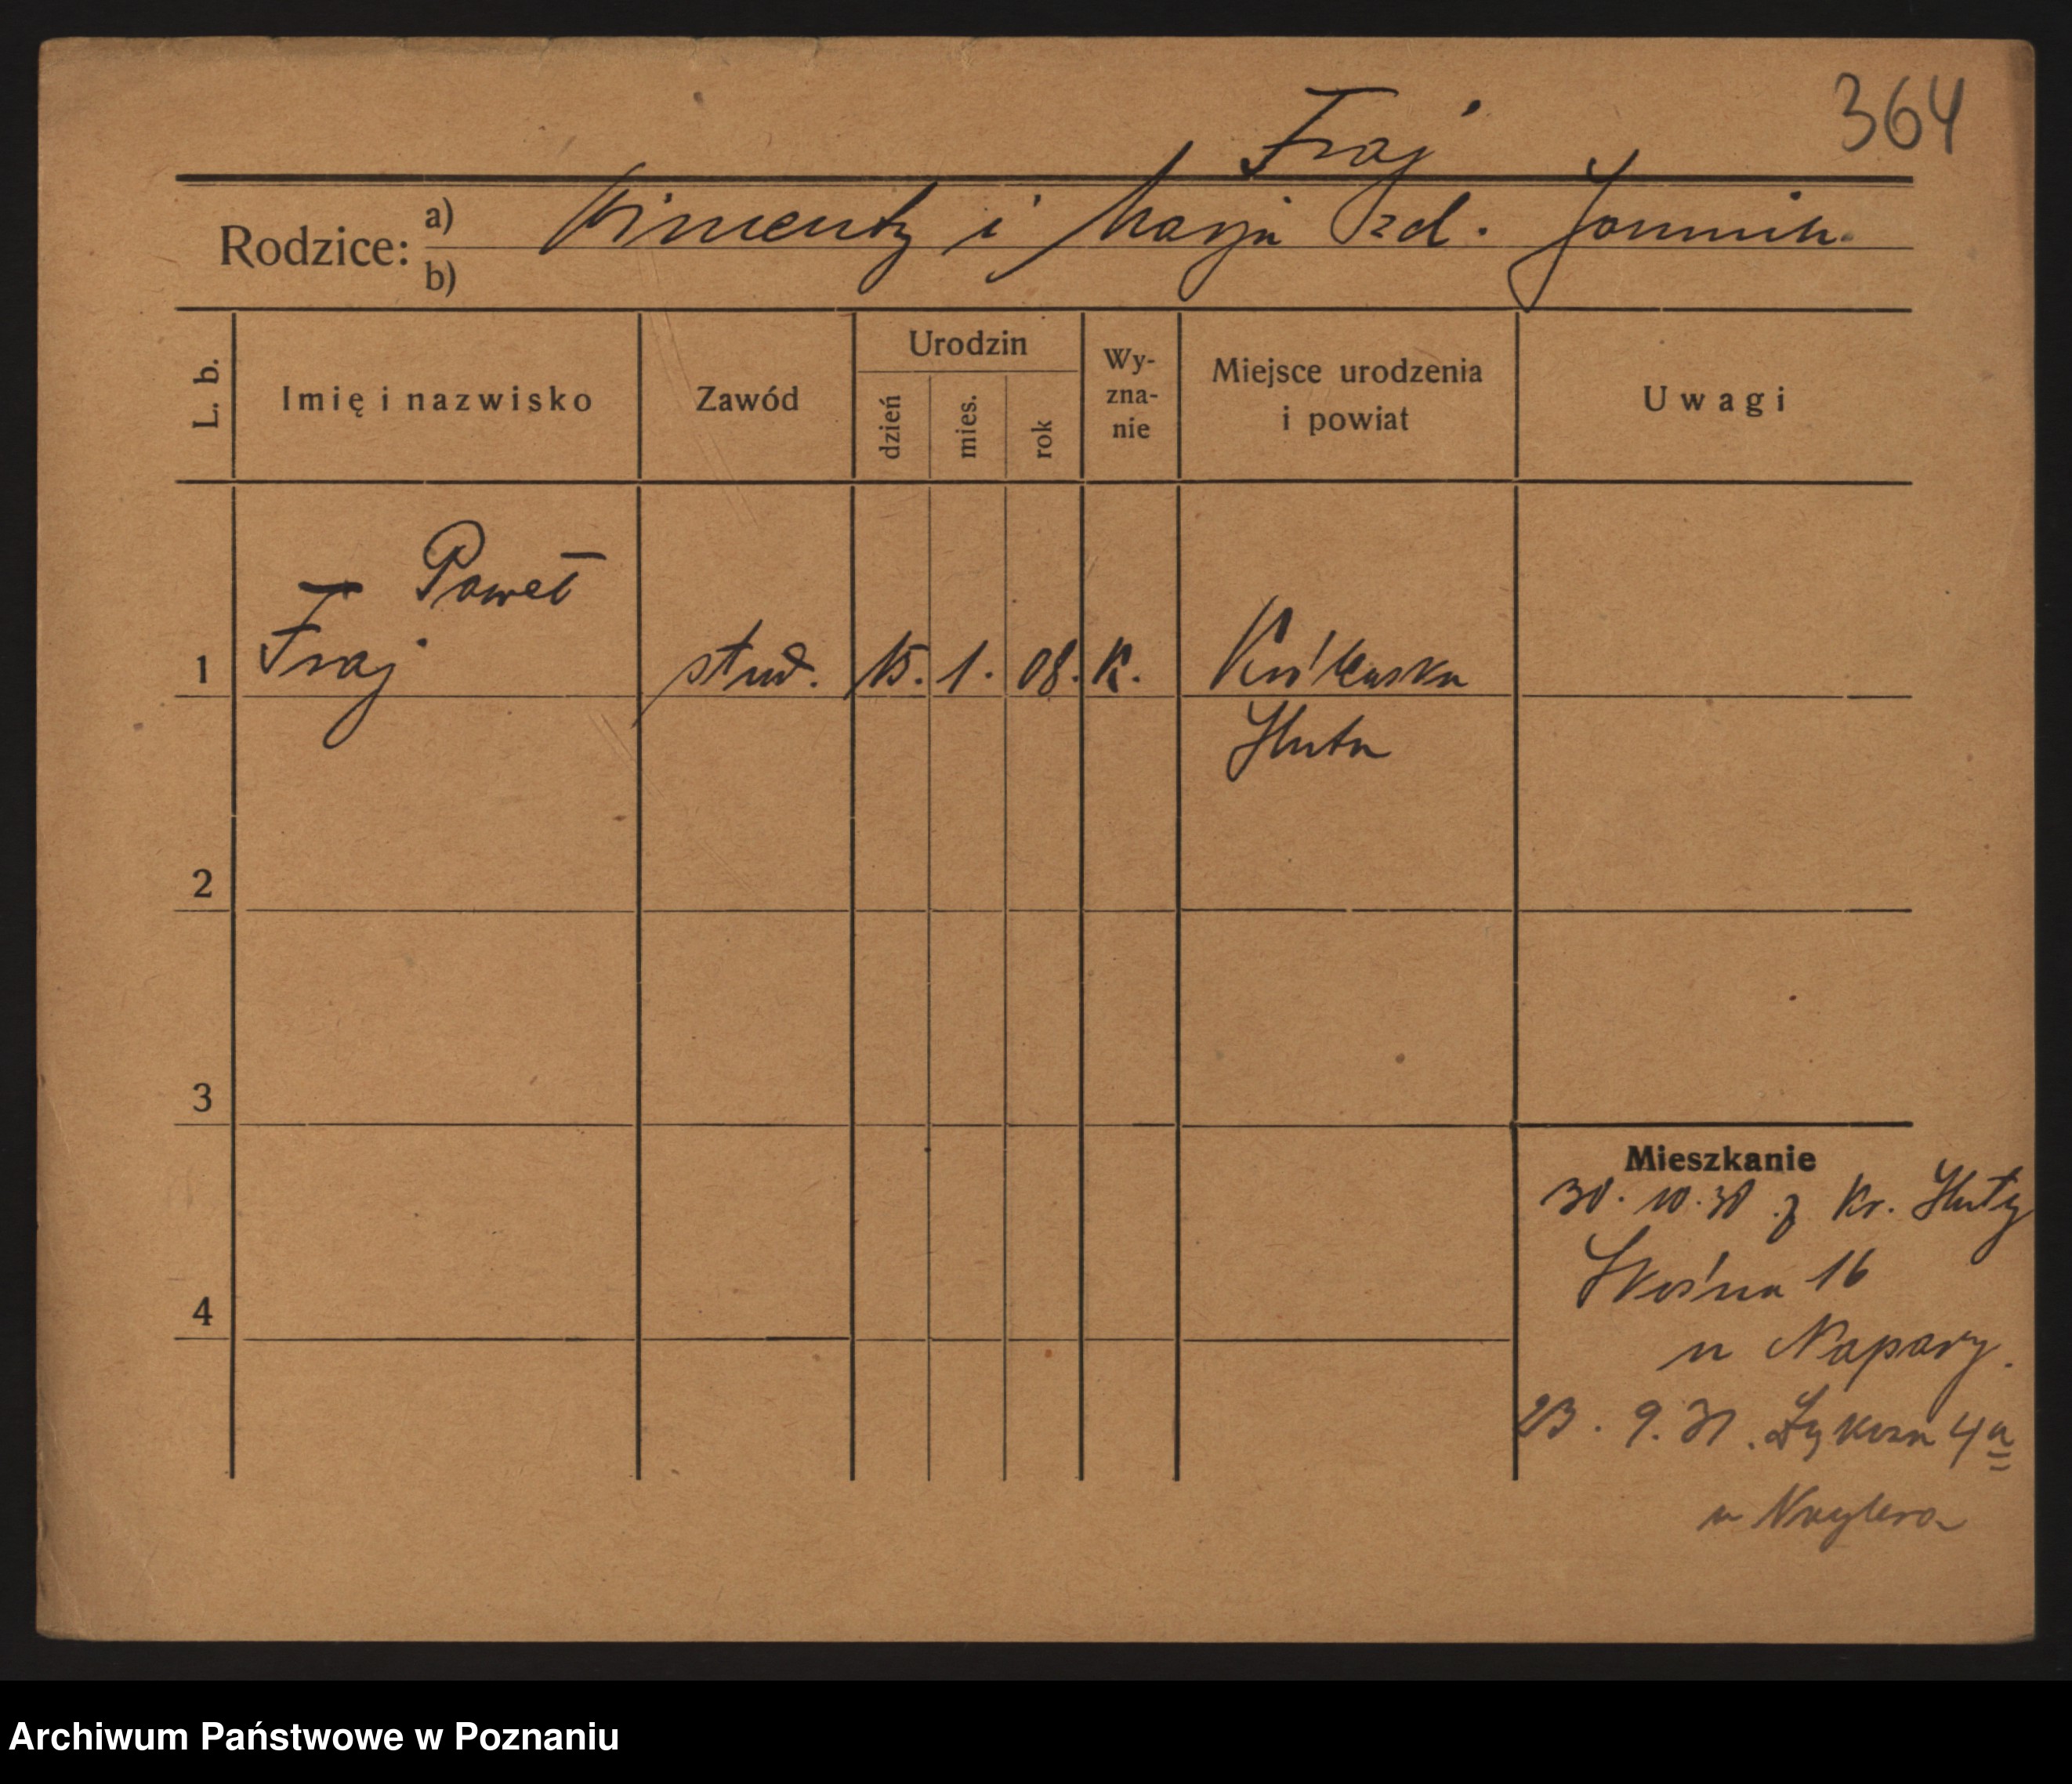 364
Fraj
Rodzice: a) Wincenty i Marja zd. Jannik
b)
L. b. Imię i nazwisko Zawód Urodzin dzień mies. rok Wy-zna-nie Miejsce urodzenia i powiat Uwagi
Paweł
1 Fraj stud. 15. 1. 08. K. Królewska
Huta
2
3
Mieszkanie
30. 10. 30 z Kr. Huty
4 Skośna 16
u Napary.
23. 9. 31. 4a
u Naglera
Archiwum Państwowe w Poznaniu